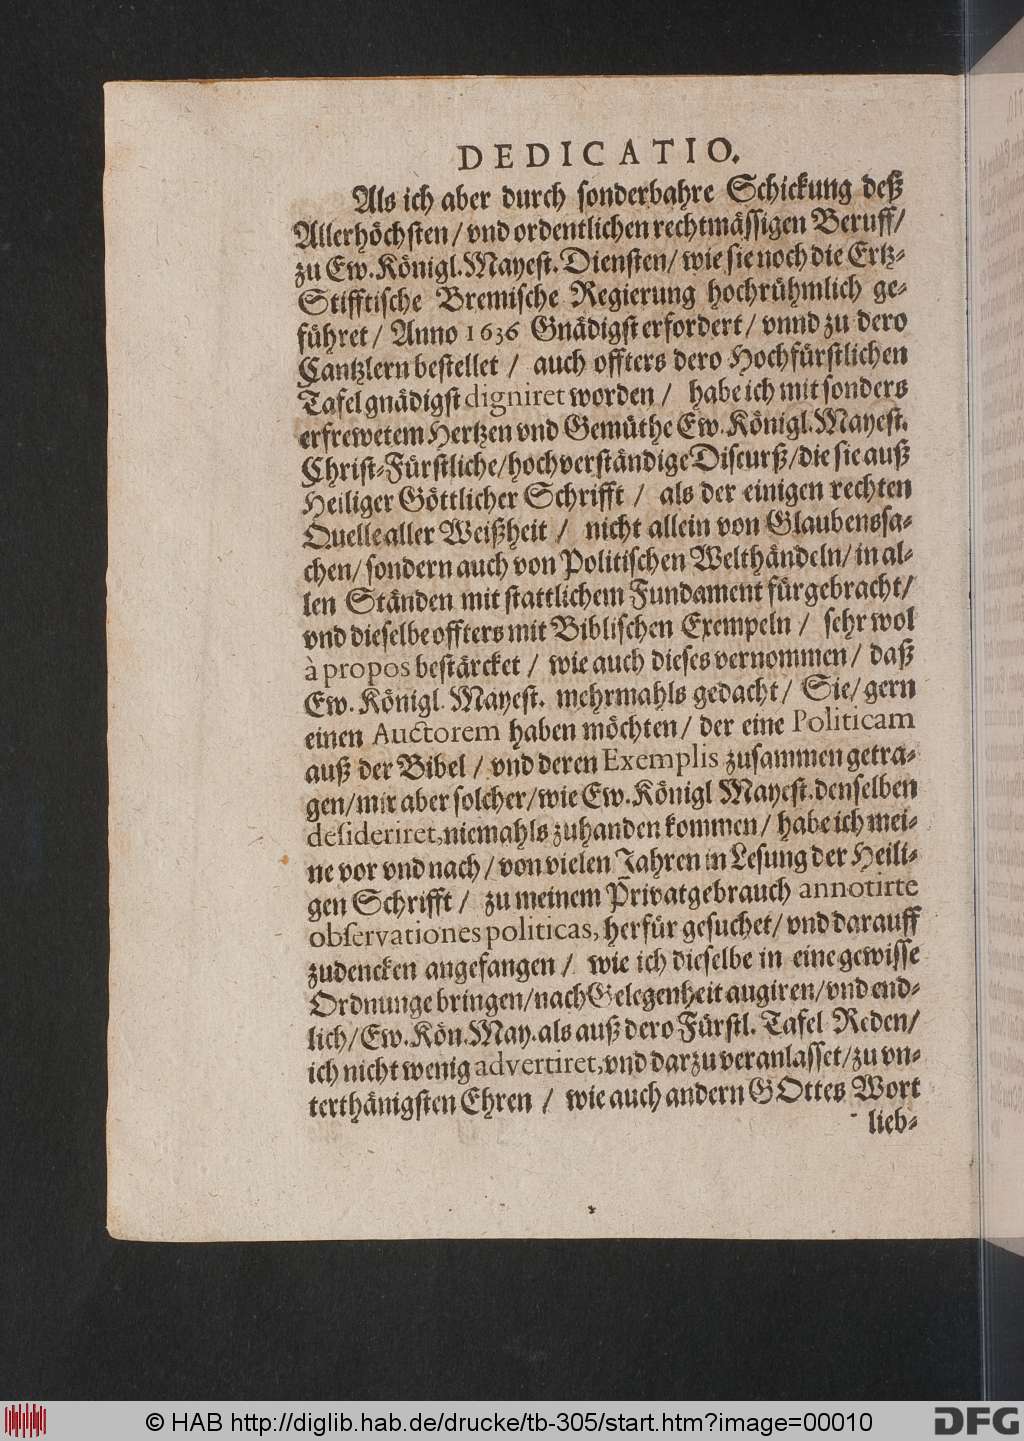 DEDICATIO.
Als ich aber durch sonderbahre Schickung deß
Allerhöchsten / vnd ordentlichen rechtmässigen Beruff /
zu Ew. Königl. Mayest. Diensten / wie sie noch die Ertz-
Stifftische Bremische Regierung hochrühmlich ge-
führet / Anno 1636 Gnädigst erfordert / vnnd zu dero
Cantzlern bestellet / auch offters dero Hochfürstlichen
Tafel gnädigst digniret worden / habe ich mit sonders
erfrewetem Hertzen vnd Gemüthe Ew. Königl. Mayest.
Christ-Fürstliche / hochverständige Discurß / die sie auß
Heiliger Göttlicher Schrifft / als der einigen rechten
Quelle aller Weißheit / nicht allein von Glaubenssa-
chen / sondern auch von Politischen Welthändeln / in al-
len Ständen mit stattlichem Fundament fürgebracht /
vnd dieselbe offters mit Biblischen Exempeln / sehr wol
à propos bestärcket / wie auch dieses vernommen / daß
Ew. Königl. Mayest. mehrmahls gedacht / Sie / gern
einen Auctorem haben möchten / der eine Politicam
auß der Bibel / vnd deren Exemplis zusammen getra-
gen / mir aber solcher / wie Ew. Königl Mayest. denselben
desideriret, niemahls zuhanden kommen / habe ich mei-
ne vor vnd nach / von vielen Jahren in Lesung der Heili-
gen Schrifft / zu meinem Privatgebrauch annotirte
observationes politicas, herfür gesuchet / vnd darauff
zudencken angefangen / wie ich dieselbe in eine gewisse
Ordnunge bringen / nach Gelegenheit augiren / vnd end-
lich / Ew. Kön. May. als auß dero Fürstl. Tafel Reden /
ich nicht wenig advertiret, vnd darzu veranlasset / zu vn-
terthänigsten Ehren / wie auch andern GOttes Wort
lieb-
© HAB http://diglib.hab.de/drucke/tb-305/start.htm?image=00010
DFG